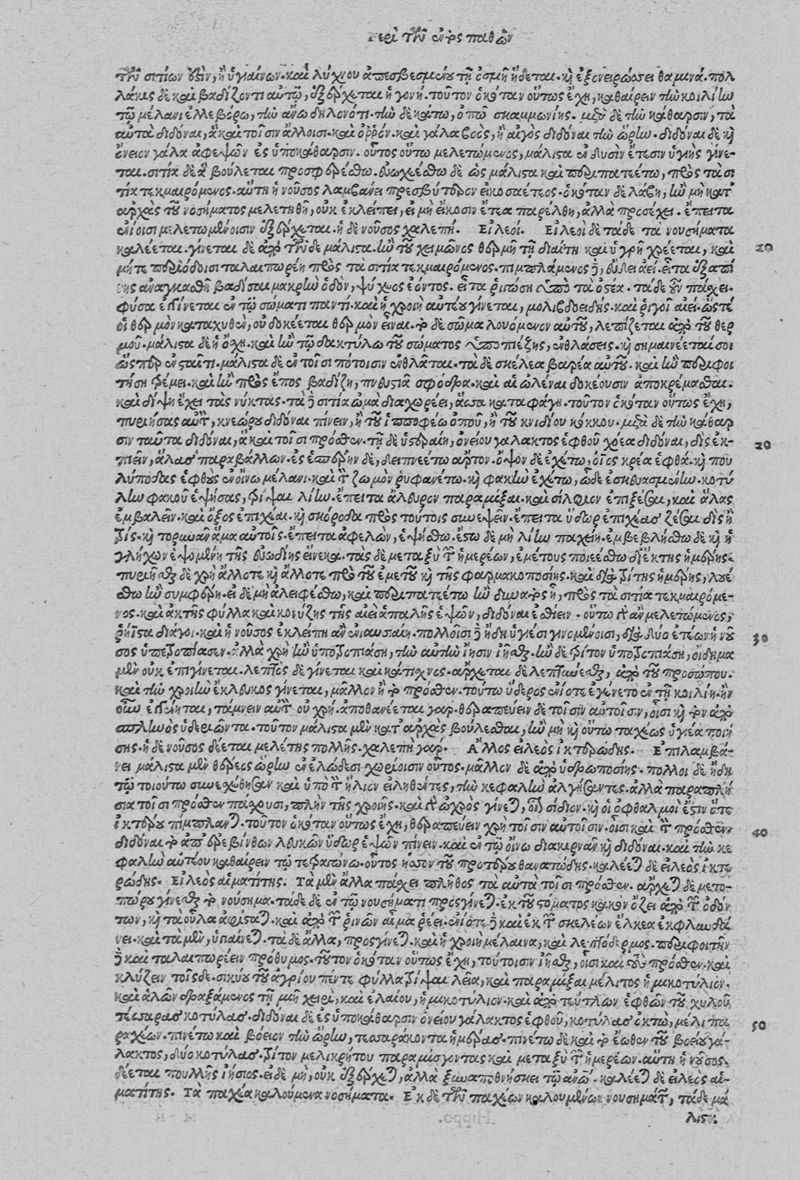 Περὶ τῶν ἐντὸς παθῶν
τῶν σιτίων ὀξὺν, ἢ ὑγιαίνων. καὶ λύχνου ἀπεσβεσμένου τῇ ὀσμῇ ἥδεται. καὶ ἐξονειρώσσει θαμινά. πολ
λάκις δὲ καὶ βαδίζοντι αὐτῷ, διέρχεται ἡ γονή. τοῦτον ὁκόταν οὕτως ἔχῃ, καθαίρειν τὴν κοιλίην
τῷ μέλανι ἐλλεβόρῳ, τὴν ἄνω δηλονότι. τὴν δὲ κάτω, ὀπῷ σκαμμωνίης. μετὰ δὲ τὴν κάθαρσιν, τὰ
αὐτὰ διδόναι, ἃ καὶ τοῖσιν ἄλλοισι. καὶ ὀρρόν. καὶ γάλα βοὸς, ἢ αἰγὸς διδόναι τὴν ὥρην. διδόναι δὲ καὶ
ὄνειον γάλα ἀφεψῶν ἐς ὑποκάθαρσιν. οὗτος οὕτω μελετώμενος, μάλιστα ἐν δυσὶν ἔτεσιν ὑγιὴς γίνε-
ται. σιτία δὲ ἃ βούλεται προσφερέσθω. εὐωχείσθω δὲ ὡς μάλιστα καὶ περιπατείτω, πρὸς τὰ σι
τία τεκμαιρόμενος. αὕτη ἡ νοῦσος λαμβάνει πρεσβύτερον εἰκοσαέτεος. ὁκόταν δὲ λάβῃ, ἢν μὴ κατ'
ἀρχὰς τοῦ νοσήματος μελετηθῇ, οὐκ ἐκλείπει, εἰ μὴ εἴκοσιν ἔτεα παρέλθῃ, ἀλλὰ προσέχει. ἔπειτα
ἐνίοισι μελετωμένοισιν ἐξέρχεται. ἡ δὲ νοῦσος χαλεπή. Εἰλεοί. Εἰλεοὶ δὲ τάδε τὰ νουσήματα
καλέεται. γίνεται δὲ ἀπὸ τῶνδε μάλιστα. ἢν τοῦ χειμῶνος θερμῇ τῇ διαίτῃ καὶ ὑγρῇ χρέεται, καὶ 20
μήτε περιόδοισι ταλαιπωρέῃ πρὸς τὰ σιτία τεκμαιρόμενος. πιμπλάμενος δὲ, εὕδει αἰεί. εἶτα ἐξαπί
νης ἀναγκασθῇ βαδίσαι μακρὴν ὁδὸν, ψύχος ἐόντος. εἶτα ῥιγώσῃ ὑπὸ τὰ ὀστέα. τάδε οὖν πάσχει.
φύσα ἐγγίνεται ἐν τῷ σώματι παντί. καὶ ἡ χροιὴ αὐτέου γίνεται, μολιβδοειδής. καὶ ῥιγοῖ αἰεὶ. ὥστε
οἱ θερμὸν καταχυθὲν, οὐ δοκέεται θερμὸν εἶναι. τὸ δὲ σῶμα λουόμενον αὐτοῦ, λεπίζεται ἀπὸ τοῦ θερ
μοῦ. μάλιστα δὲ ἡ ὄσχη. καὶ ἢν τῷ δακτύλῳ τοῦ σώματος ὑποπιέζῃς, ἐνθλάσεις. καὶ σημαινέεται οἱ
ὥσπερ ἐν σταιτί. μάλιστα δὲ ἐν τοῖσι ποσὶν ἐνθλᾶται. τὰ δὲ σκέλεα βαρέα αὐτοῦ. καὶ ἢν περιφοι
τήσῃ τρέμει. καὶ ἢν πρὸς ἔπος βαδίζῃ, πνευστιᾷ σφόδρα. καὶ αἱ ὠλέναι δοκέουσιν ἀποκρέμασθαι.
καὶ δίψη ἔχει τὰς νύκτας. τὰ δὲ σιτία ὠμὰ διαχωρέει, ἅσσα καταφάγῃ. τοῦτον ὁκόταν οὕτως ἔχῃ,
πυριήσας αὐτὸν, κνεώρου διδόναι πίνειν, ἢ τοῦ ἱπποφέω ὀποῦ, ἢ τοῦ κνιδίου κόκκου. μετὰ δὲ τὴν κάθαρ
σιν ταῦτα διδόναι, ἃ καὶ τοῖσι πρόσθεν. τῇ δὲ ὑστεραίῃ, ὀνείου γάλακτος ἑφθοῦ χοέα διδόναι, δὶς ἐκ- 20
πιεῖν, ἅλας παραβάλλων. ἐς ἑσπέρην δὲ, δειπνεέτω ἄρτον. ὄψον δὲ ἐχέτω, οἰὸς κρέα ἑφθά. καὶ που
λύποδας ἑφθοὺς ἐν οἴνῳ μέλανι. καὶ τὸν ζωμὸν ῥυφανέτω. καὶ φακὴν ἐχέτω, ὧδε ἐσκευασμένην. κοτύ
λην φακοῦ ἑψήσας, τρίψαι λείην. ἔπειτα ἄλευρον παραμίξαι. καὶ σίλφιον ἐπιξέσαι, καὶ ἅλας
ἐμβαλεῖν. καὶ ὄξος ἐπιχέαι. καὶ σκόροδα πρὸς τούτοις συνεψεῖν. ἔπειτα ὕδωρ ἐπιχέας ζέσαι δὶς ἢ
τρίς. καὶ τορύνην ἅμα αὐτοῖς. ἔπειτα ἀφελὼν, ἐψήσθω. ἔστω δὲ μὴ λίην παχείη. ἐμβεβλήσθω δὲ καὶ ἡ
γλήχων ἐψομένη τῆς εὐωδίης εἵνεκα. τὰς δὲ μεταξὺ τῶν ἡμερέων, ἐμέτους ποιεέσθω δι' ἕκτης ἡμέρης.
πυριῆσθαι δὲ χρὴ ἄλλοτε καὶ ἄλλοτε πρὸ τοῦ ἐμέτου καὶ τῆς φαρμακοποσίης. καὶ διὰ τρίτης ἡμέρης, λουέ
σθω ἢν συμφέρῃ. εἰ δὲ μὴ ἀλειφέσθω, καὶ περιπατείτω ἢν δυνατὸς ᾖ, πρὸς τὰ σιτία τεκμαιρόμε-
νος. καὶ ἀκτῆς φύλλα καὶ κονύζης τῆς αἰεὶ ἁπαλῆς ἕψων, διδόναι ἐσθίειν. οὕτω γὰρ ἂν μελετώμενος,
ῥήϊστα διάγοι. καὶ ἡ νοῦσος ἐκλείπῃ ἂν ἐνιαυσίαιη. πολλοῖσι δὲ ἤδη ὑγιέσι γινομένοισι, διὰ δύο ἐτέων ἡ νοῦ 30
σος ὑπετροπίασεν. ἀλλὰ χρὴ ἢν ὑποτροπιάσῃ, τὴν αὐτὴν ἴησιν ἰῆσθαι. ἢν δὲ τρίτον ὑποτροπιάσῃ, οἴδημα
μὲν οὐκ ἐπιγίνεται. λεπτὸς δὲ γίνεται καὶ κάτισχνος. ἄρχεται δὲ λεπτύνεσθαι, ἀπὸ τοῦ προσώπου.
καὶ τὴν χροιὴν ἔκλευκος γίνεται, μᾶλλον ἢ τὸ πρόσθεν. τούτῳ ὕδερος ἐνίοτε ἐγένετο ἐν τῇ κοιλίῃ. ἢν
οὖν ἐγγίνηται, τάμνειν αὐτὸν οὐ χρή. ἀποθανέεται γάρ. θεραπεύειν δὲ τοῖσιν αὐτοῖσιν, οἷσι καὶ τὸν ἀπὸ
σπληνὸς ὑδεριῶντα. τοῦτον μάλιστα μὲν κατ' ἀρχὰς βούλεσθαι, ἢν μὴ καὶ οὕτω ταχέως ὑγιέα ποιή
σῃς. ἡ δὲ νοῦσος δέεται μελέτης πολλῆς. χαλεπὴ γάρ. Ἄλλος εἰλεὸς ἰκτερώδης. Ἐπιλαμβά-
νει μάλιστα μὲν θέρεος ὥρην ἐν ἑλώδεσι χωρίοισιν οὗτος. μᾶλλον δὲ ἀπὸ ὑδροποσίης. πολλοὶ δὲ ἤδη
τῷ τοιούτῳ συνεσχέθησαν καὶ ὑπὸ τὸν ἥλιον εἰληθέντες, τὴν κεφαλὴν ἀλγήσαντες. ἀλλὰ παραπλή
σια τοῖσι πρόσθεν πάσχουσι, πλὴν τῆς χροιῆς. καὶ γὰρ ὠχρὸς γίνεται, οἷον σίδιον. καὶ οἱ ὀφθαλμοὶ ἔστιν ὅτε
ἰκτέρου πίμπλανται. τοῦτον ὁκόταν οὕτως ἔχῃ, θεραπεύειν χρὴ τοῖσιν αὐτοῖσιν. οἷσι καὶ τὸν πρόσθεν. 40
διδόναι δὲ ἀπὸ ἐρεβίνθων λευκῶν ὕδωρ ἕψων πίνειν. καὶ ἐν τῷ οἴνῳ διακιρνᾶν καὶ διδόναι. καὶ τὴν κε
φαλὴν αὐτέου καθαίρειν τῷ τετραγώνῳ. οὗτος ἧσσον τοῦ προτέρου θανατώδης. καλέεται δὲ εἰλεὸς ἰκτε
ρώδης. Εἰλεὸς αἱματίτης. Τὰ μὲν ἄλλα πάσχει πλῆθος ταὐτὰ τοῖσι πρόσθεν. ἄρχεται δὲ μετο-
πώρου γίνεσθαι τὸ νούσημα. τάδε δὲ ἐν τῷ νουσήματι προσγίνεται. ἐκ τοῦ στόματος κακὸν ὄζει ἀπὸ τῶν ὀδόν
των, καὶ τὰ οὖλα ἀφίσταται. καὶ ἀπὸ τῶν ῥινῶν αἷμα ῥέει. ἐνίοτε δὲ καὶ ἐκ τῶν σκελέων ἕλκεα ἐκφλυνδά
νει. καὶ τὰ μὲν, ὑγιαίνεται. τὰ δὲ ἄλλα, προσγίνεται. καὶ ἡ χροιὴ μέλαινα, καὶ λεπτόδερμος. περιφοιτῆν
δὲ καὶ ταλαιπωρέειν πρόθυμος. τοῦτον ὁκόταν οὕτως ἔχῃ, τούτοισιν ἰῆσθαι, οἷσι καὶ τοὺς πρόσθεν. καὶ
κλύζειν τοῖσδε. σικύου τοῦ ἀγρίου πέντε φύλλα τρίψας λεῖα, καὶ παραμίξαι μέλιτος ἡμικοτύλιον.
καὶ ἁλῶν δραξάμενος τῇ μιῇ χειρὶ, καὶ ἐλαίου, ἡμικοτύλιον. καὶ ἀπὸ τεύτλων ἑφθῶν τοῦ χυλοῦ,
τέσσαρας κοτύλας. διδόναι δὲ ἐς ὑποκάθαρσιν ὀνείου γάλακτος ἑφθοῦ, κοτύλας ὀκτὼ, μέλι πα 50
ραχέων. πινέτω καὶ βόειον τὴν ὥρην, τεσσαράκοντα ἡμέρας. πινέτω δὲ καὶ τὸ ἕωθεν τοῦ βοείου γά-
λακτος, δύο κοτύλας. τρίτον μελικρήτου παραμίσγοντας καὶ μεταξὺ τῶν ἡμερέων. αὕτη ἡ νοῦσος.
δέεται πουλλῆς ἰήσιος. εἰ δὲ μὴ, οὐκ ἐξέρχεται, ἀλλὰ ξυναποθνήσκει τῷ ἀνθρώπῳ. καλέεται δὲ εἰλεὸς αἱ-
ματίτης. Τὰ παχέα καλούμενα νοσήματα. Ἐκ δὲ τῶν παχέων καλουμένων νουσημάτων, τάδε μά
λιστα
Hippo.